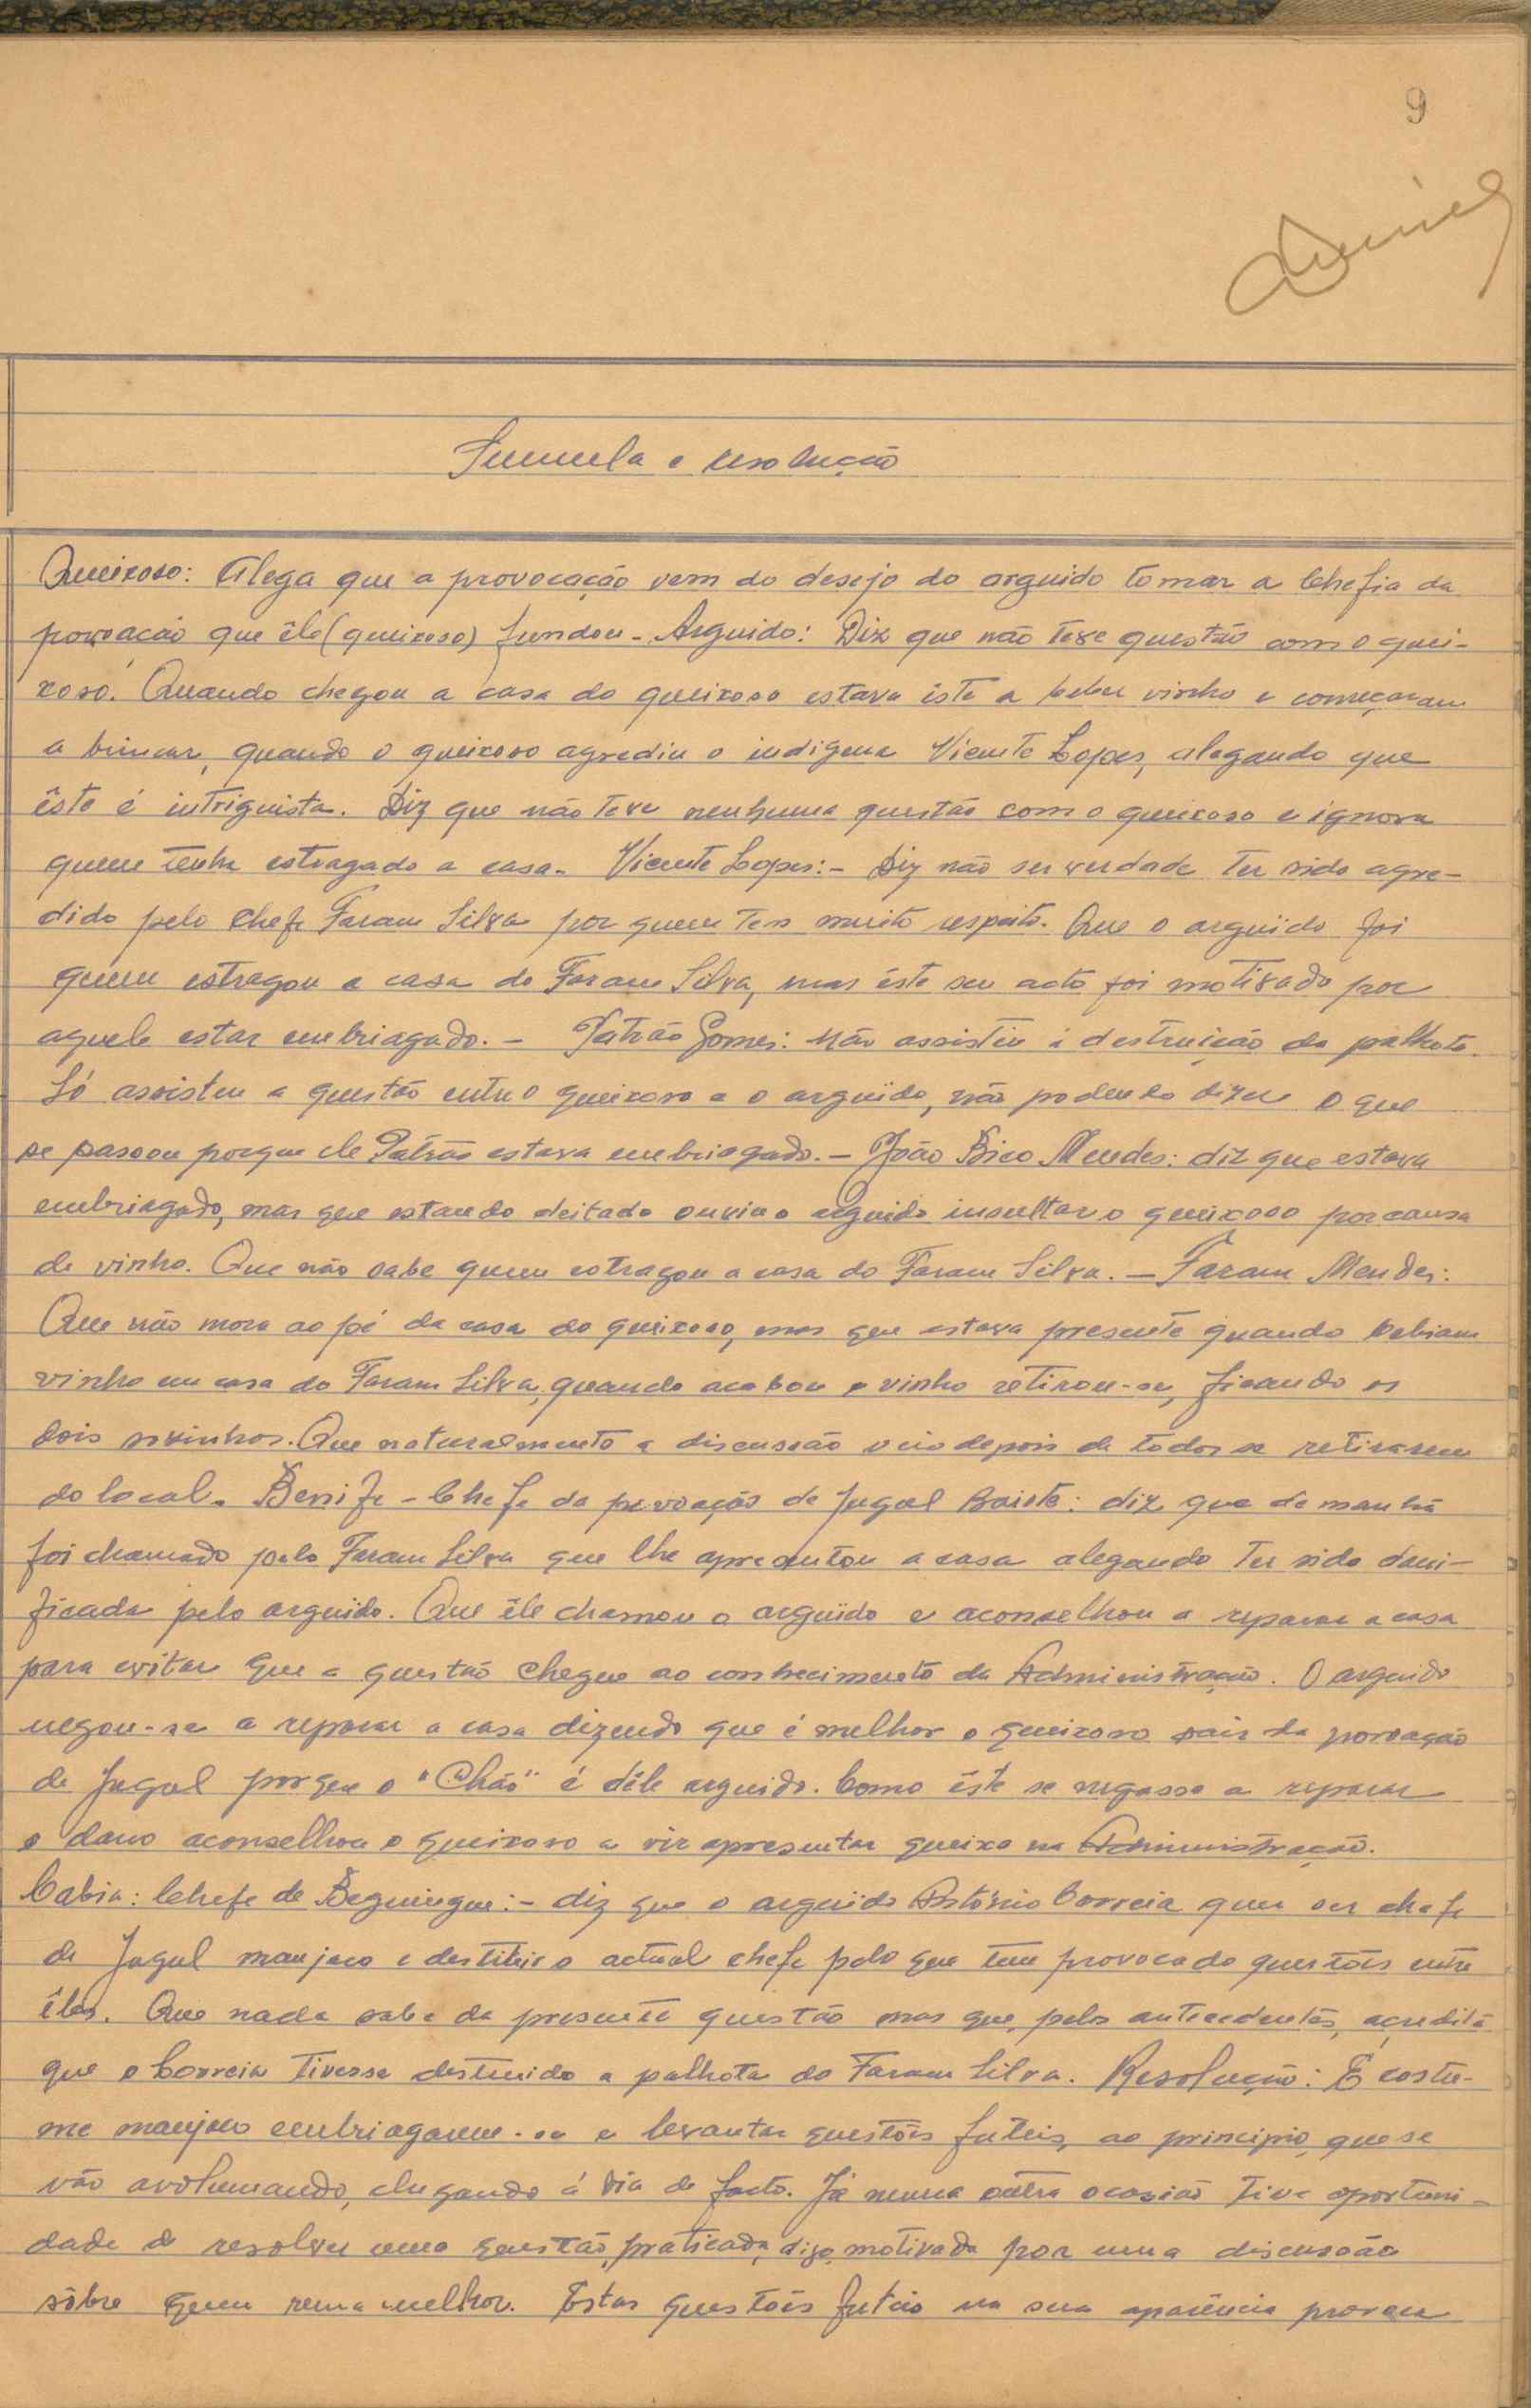 9
Sumula e resolução
Queixoso: Alega que a provocação vem do desejo do arguido tomar a Chefia da
povoação que êle (queixoso) fundou - Arguido: Diz que não teve questão com o quei-
xoso. Quando chegou a casa do queixoso estava êste a beber vinho e começaram
a brincar, quando o queixoso agrediu o indigena Vicente Lopes, alegando que
êste é intriguista. Diz que não teve nenhuma questão com o queixoso e ignora
quem tenha estragado a casa. Vicente Lopes:- Diz não ser verdade ter sido agre-
dido pelo Chefe Faram Silva por quem tem muito respeito. Que o arguido foi
quem estragou a casa do Faram Silva, mas êste seu acto foi motivado por
aquele estar embriagado. - Patrão Gomes: Não assistiu á destruição da palhota.
Só assistiu a questão entre o queixoso e o arguido, não podendo dizer o que
se passou porque ele Patrão estava embriagado. - João Bico Mendes: diz que estava
embriagado, mas que estando deitado ouviu o arguido insultar o queixoso por causa
de vinho. Que não sabe quem estragou a casa do Faram Silva. - Faram Mendes:
Que não mora ao pé da casa do queixoso, mas que estava presente quando bebiam
vinho em casa do Faram Silva, quando acabou o vinho retirou-se, ficando os
dois sozinhos. Que naturalmente a discussão veio depois de todos se retirarem
do local. Benife - Chefe da povoação de Jugul : diz que de manhã
foi chamado pelo Faram Silva que lhe apresentou a casa alegando ter sido dani-
ficada pelo arguido. Que êle chamou o arguido e aconselhou a reparar a casa
para evitar que a questão chegue ao conhecimento da Administração. O arguido
negou-se a reparar a casa dizendo que é melhor o queixoso sair da povoação
de Jugul porque o "Chão" é dêle arguido. Como êste se negasse a reparar
o dano aconselhou o queixoso a vir apresentar queixa na Administração.
Cabia: Chefe de :- diz que o arguido António Correia quer ser chefe
de Jugul manjaco e destituir o actual chefe pelo que tem provocado questões entre
êles. Que nada sabe da presente questão mas que, pelos antecedentes, acredita
que o Correia tivesse destruido a palhota do Faram Silva. Resolução: É costu-
me manjaco embriagarem-se e levantar questões futeis, ao principio, que se
vão avolumando, chegando á via de facto. Já numa outra ocasião tive oportuni-
dade de resolver uma questão, praticada, digo, motivada por uma discussão
sôbre quem rema melhor. Estas questões futeis na sua aparência provam